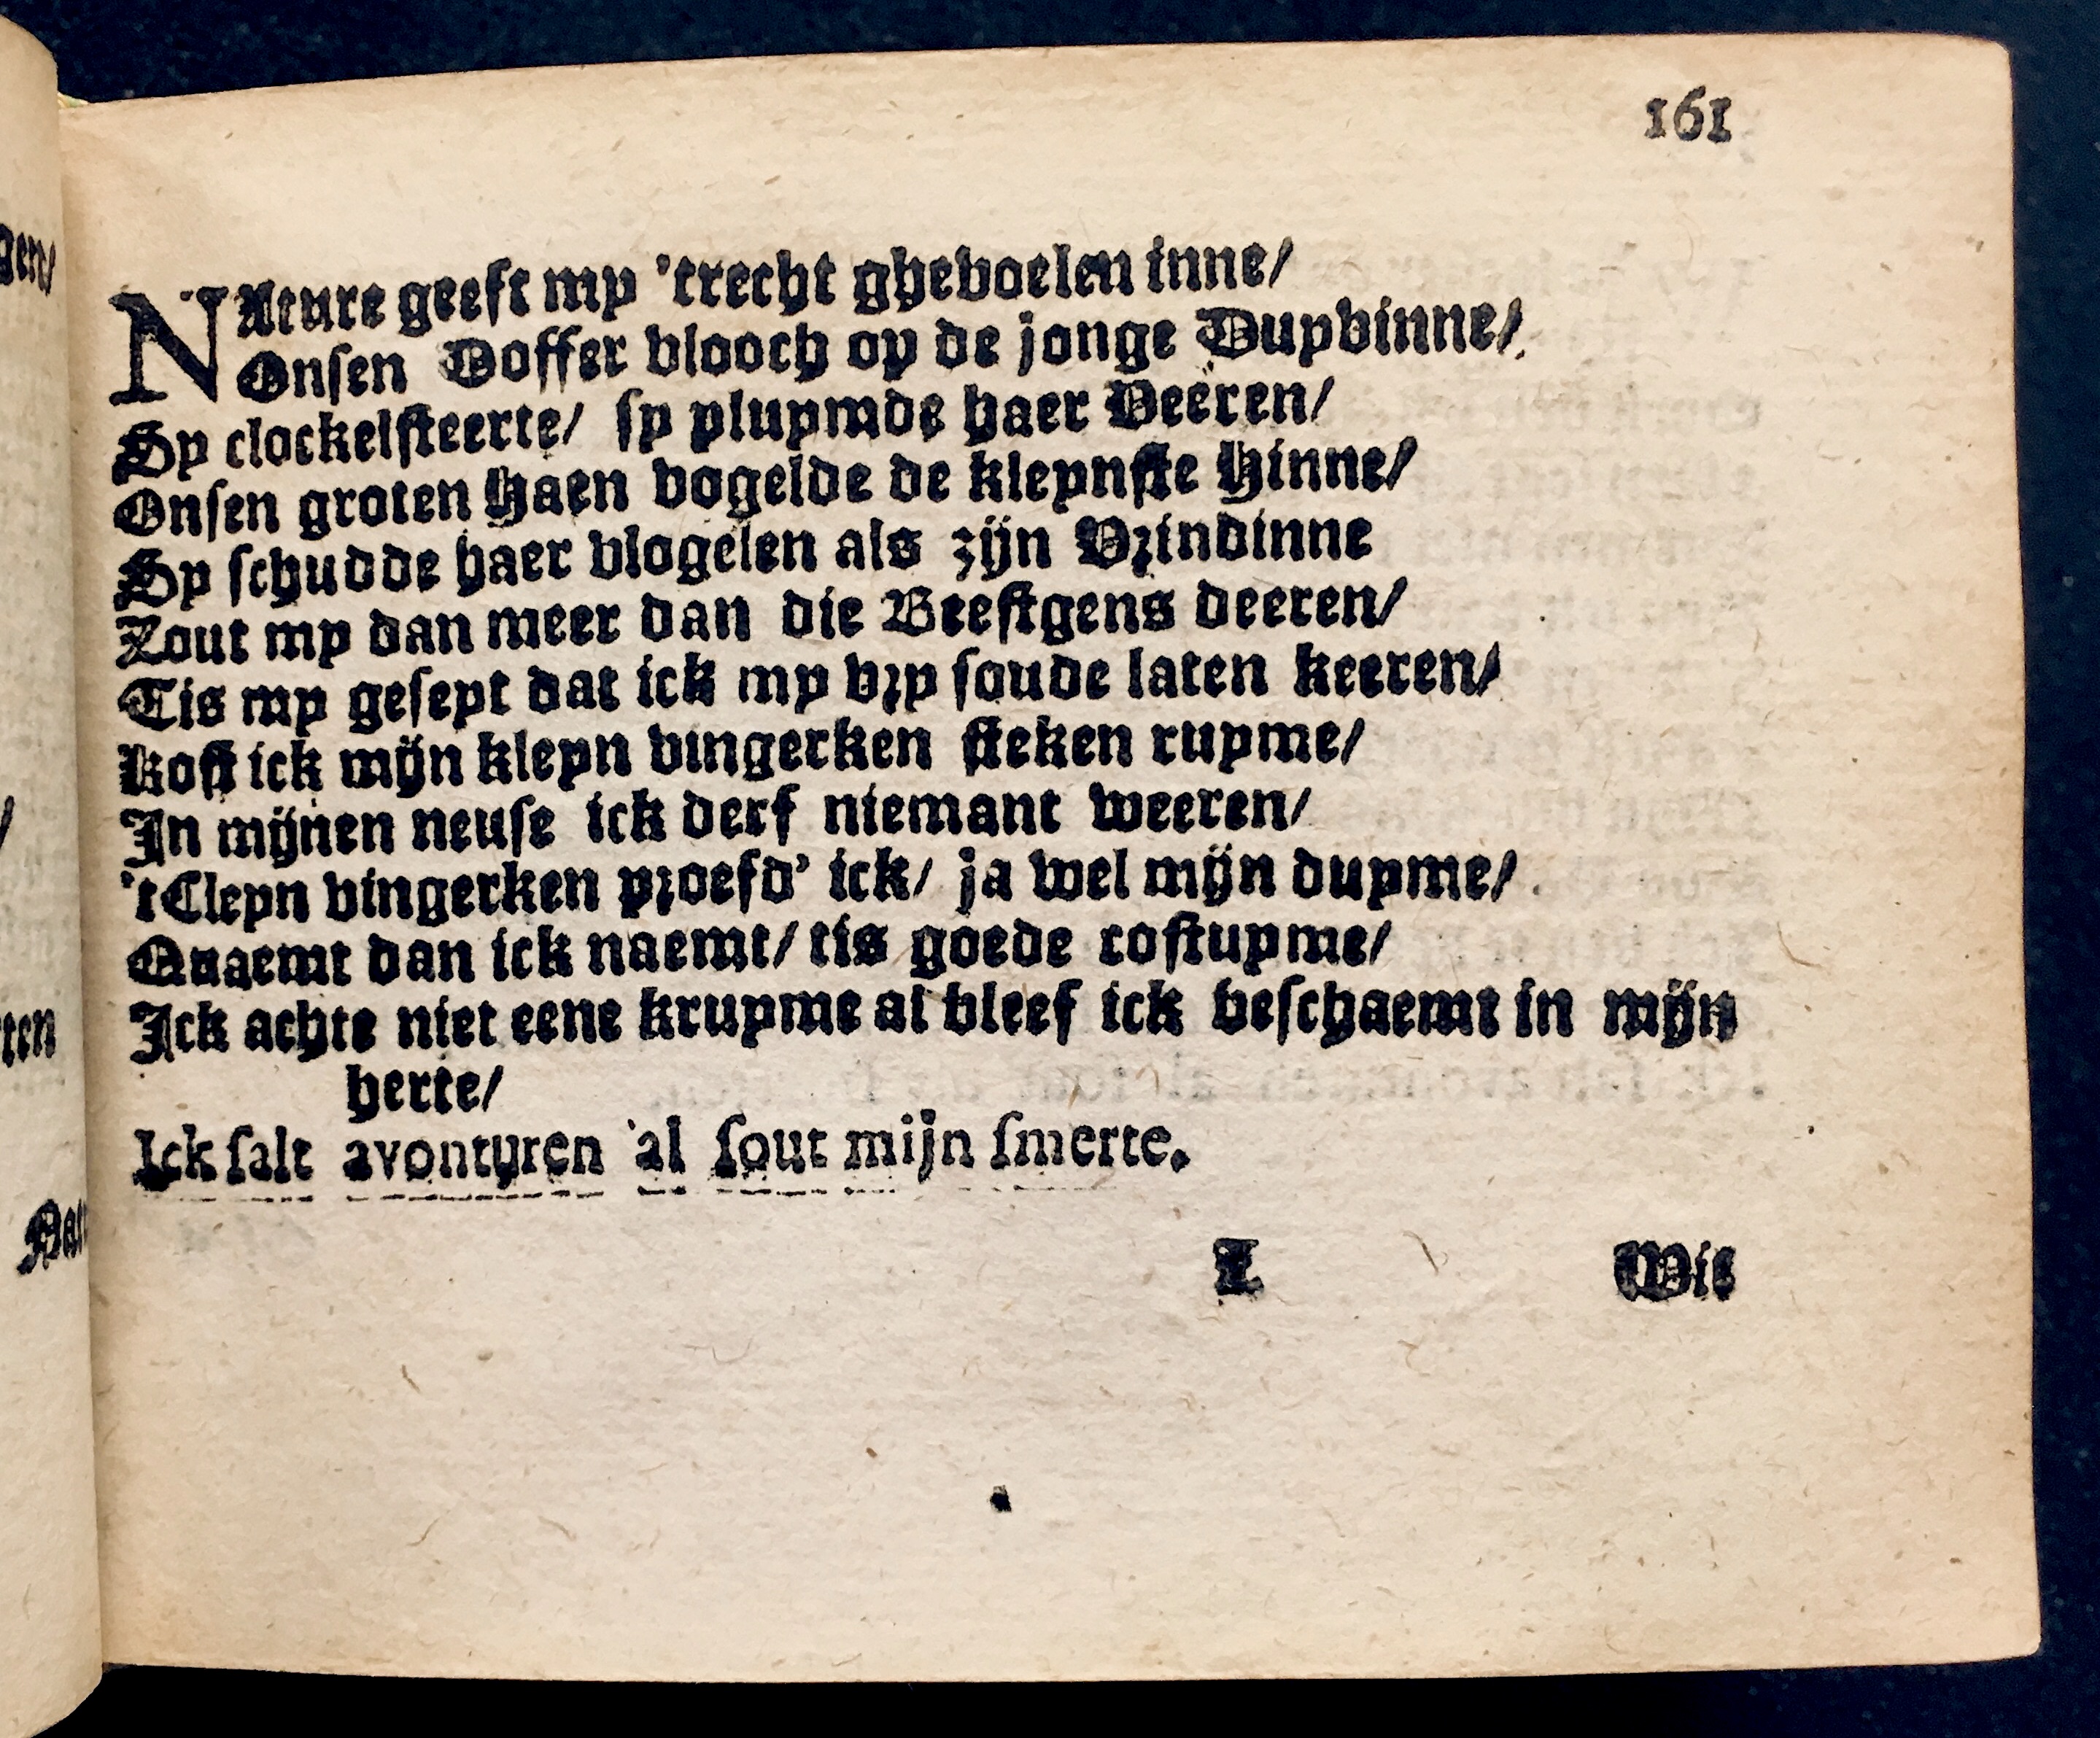 161
gen/
NAture geeft my 'trecht ghevoelen inne/
Onsen Doffer vlooch op de jonge Duyvinne/
Sy clockelsteerte/ sy pluymde haer Veeren/
Onsen groten Haen vogelde de kleynste Hinne/
Sy schudde haer vlogelen als zijn Vrindinne
Zout my dan meer dan die Beestgens deeren/
Tis my geseyt dat ick my vry soude laten keeren/
Kost ick mijn kleyn vingerken steken ruyme/
In mijnen neuse ick derf niemant weeren/
't Cleyn vingerken proefd' ick/ ja wel mijn duyme/
Quaemt dan ick naemt/ tis goede costuyme/
Ick achte niet eene kruyme al bleef ick beschaemt in mijn
herte/
Ick salt avonturen al sout mijn smerte.
L Wil